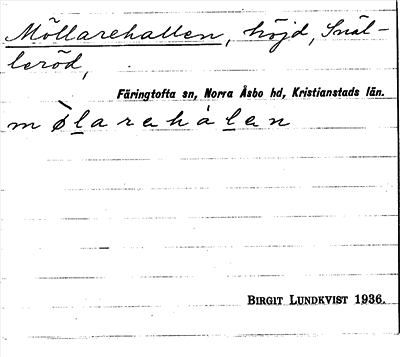 Möllarehallen, höjd, Snäl-
leröd,
Färingtofta sn, Norra Åsbo hd, Kristianstads län.
mø̀larehålen
BIRGIT LUNDKVIST 1936.